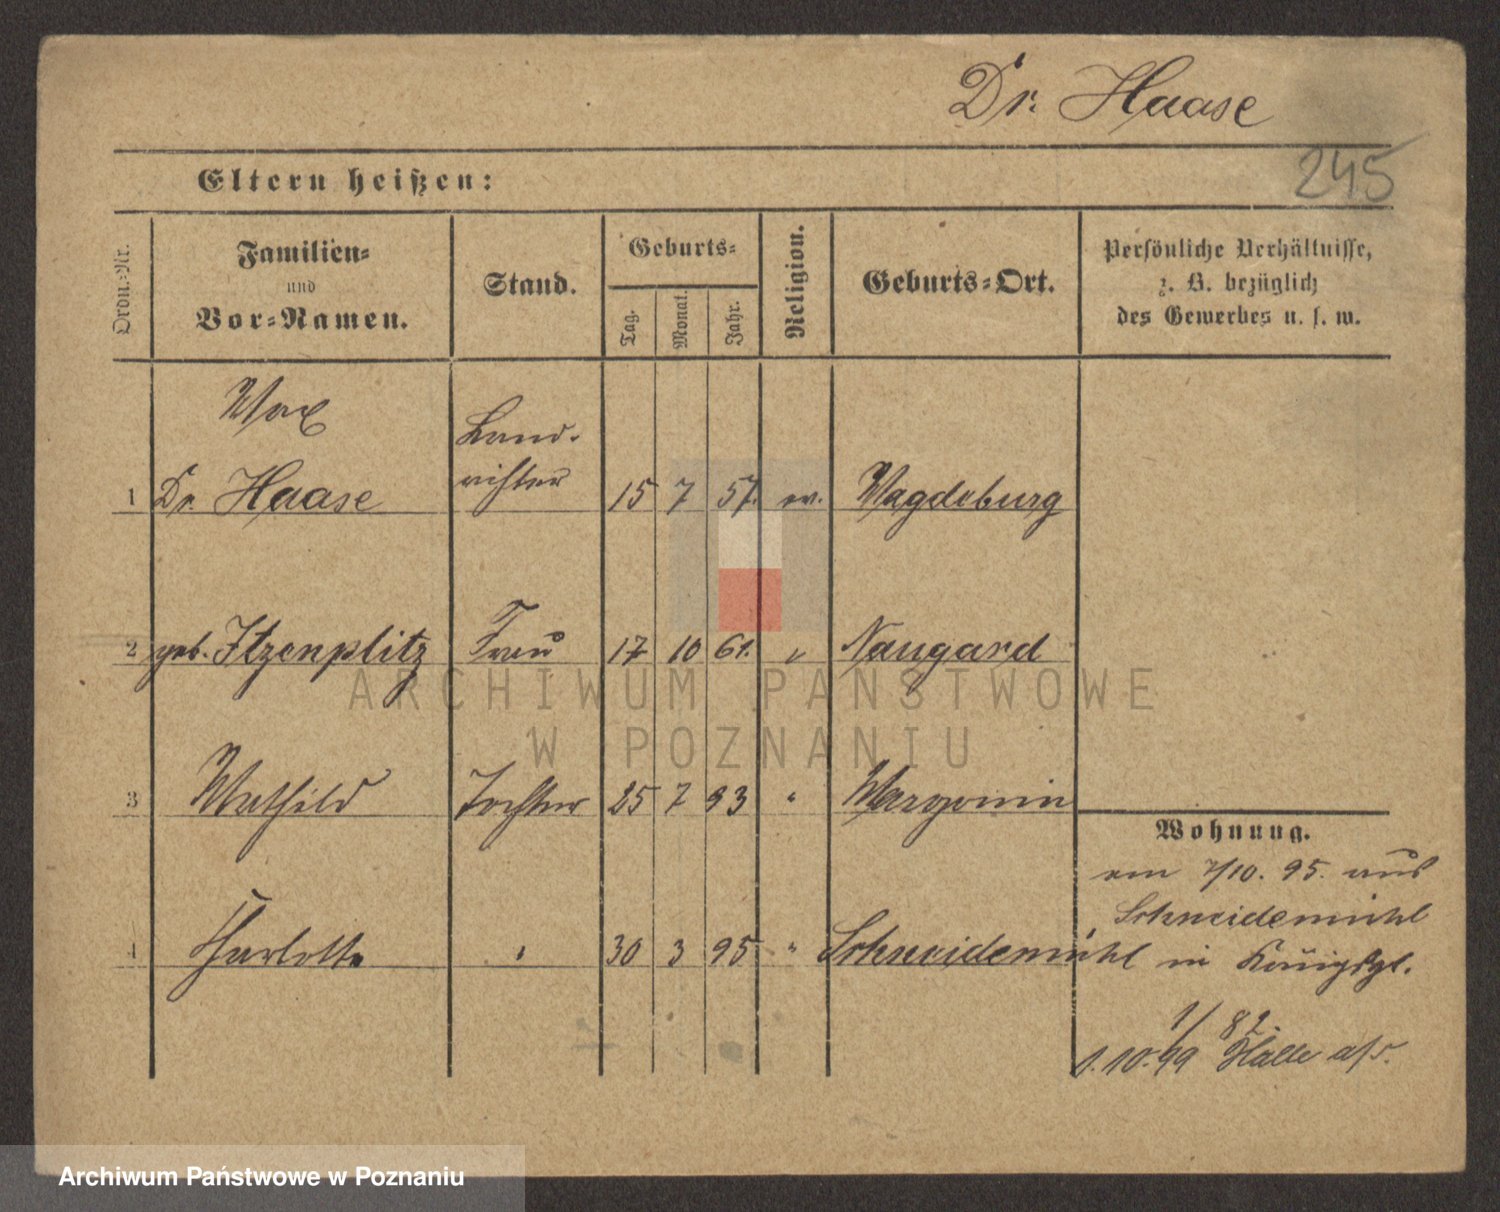 Dr. Haase
245
Eltern heißen:
Ordn.-Nr.
Familien-
und
Vor-Namen.
Stand.
Geburts-
Tag.
Monat.
Jahr.
Religion.
Geburts-Ort.
Persönliche Verhältnisse,
z. B. bezüglich
des Gewerbes u. s. w.
Max
Land-
1 Dr. Haase richter 15 7 57. ev. Magdeburg
2 geb. Itzenplitz Frau 17 10 61. " Naugard
3 Mathild Tochter 25 7 93 " Margonin
Wohnung.
am 7/10. 95. aus
Schneidemühl
4 Charlotte " 30 3 95 " Schneidemühl in Königspl.
1/82.
1.10.99 Halle a/S.
ARCHIWUM PAŃSTWOWE
W POZNANIU
Archiwum Państwowe w Poznaniu